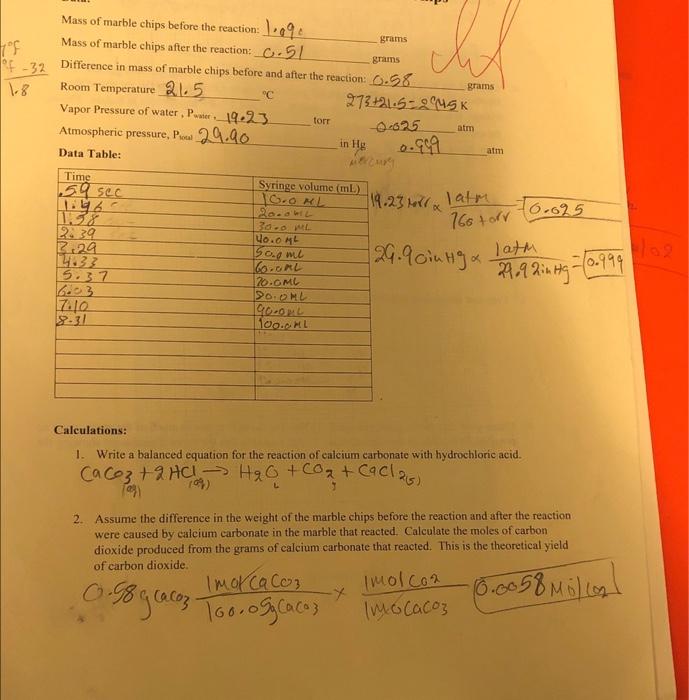 Mass of marble chips before the reaction: 1.09 grams
Mass of marble chips after the reaction: 0.51 grams
°F - 32
1.8
Difference in mass of marble chips before and after the reaction: 0.58 grams
Room Temperature 21.5 °C
273+21.5=294.5 K
Vapor Pressure of water, Pwater, 19.23 torr 0.025 atm
Atmospheric pressure, Ptotal 29.90 in Hg 0.999 atm
mercury
Data Table:
Time Syringe volume (mL)
.59 sec 10.0 mL
1.46 20.0 mL
1.58 30.0 mL
2.39 40.0 mL
3.29 50.0 mL
4.33 60.0mL
5.37 70.0mL
6.03 80.0mL
7.10 90.0mL
8.31 100.0mL
19.23 torr x 1atm / 760 torr = 0.025
29.90in Hg x 1atm / 29.92in Hg = 0.999
Calculations:
1. Write a balanced equation for the reaction of calcium carbonate with hydrochloric acid.
CaCO3 (aq) + 2HCl (aq) → H2O L + CO2 g + CaCl2(s)
2. Assume the difference in the weight of the marble chips before the reaction and after the reaction
were caused by calcium carbonate in the marble that reacted. Calculate the moles of carbon
dioxide produced from the grams of calcium carbonate that reacted. This is the theoretical yield
of carbon dioxide.
0.58g CaCO3 1mol CaCO3 / 100.09g CaCO3 x 1mol CO2 / 1mol CaCO3 0.0058 Mol CO2